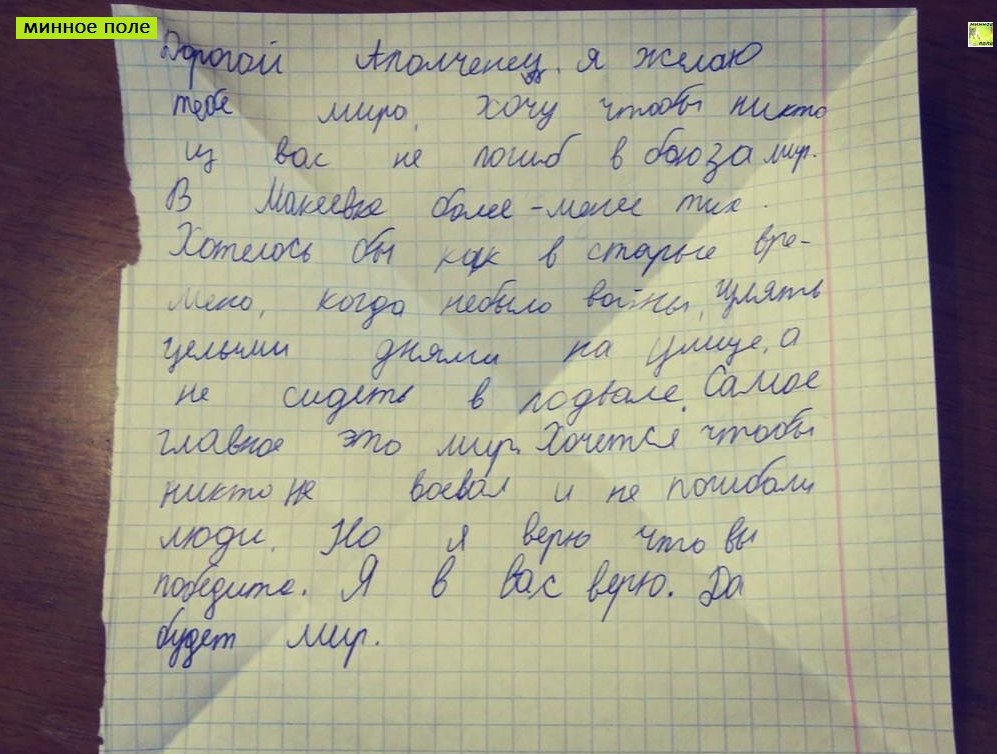 минное поле
Дорогой Аполченец. я желаю
тебе мира, хочу чтобы никто
из вас не погиб в бою за мир.
В Макеевке более-менее тих.
Хотелось бы как в старые вре-
мена, когда небыло войны, гулять
целыми днями на улице, а
не сидеть в подвале. Самое
главное это мир. Хочется чтобы
никто не воевал и не погибали
люди. Но я верю что вы
победите. Я в вас верю. Да
будет мир.